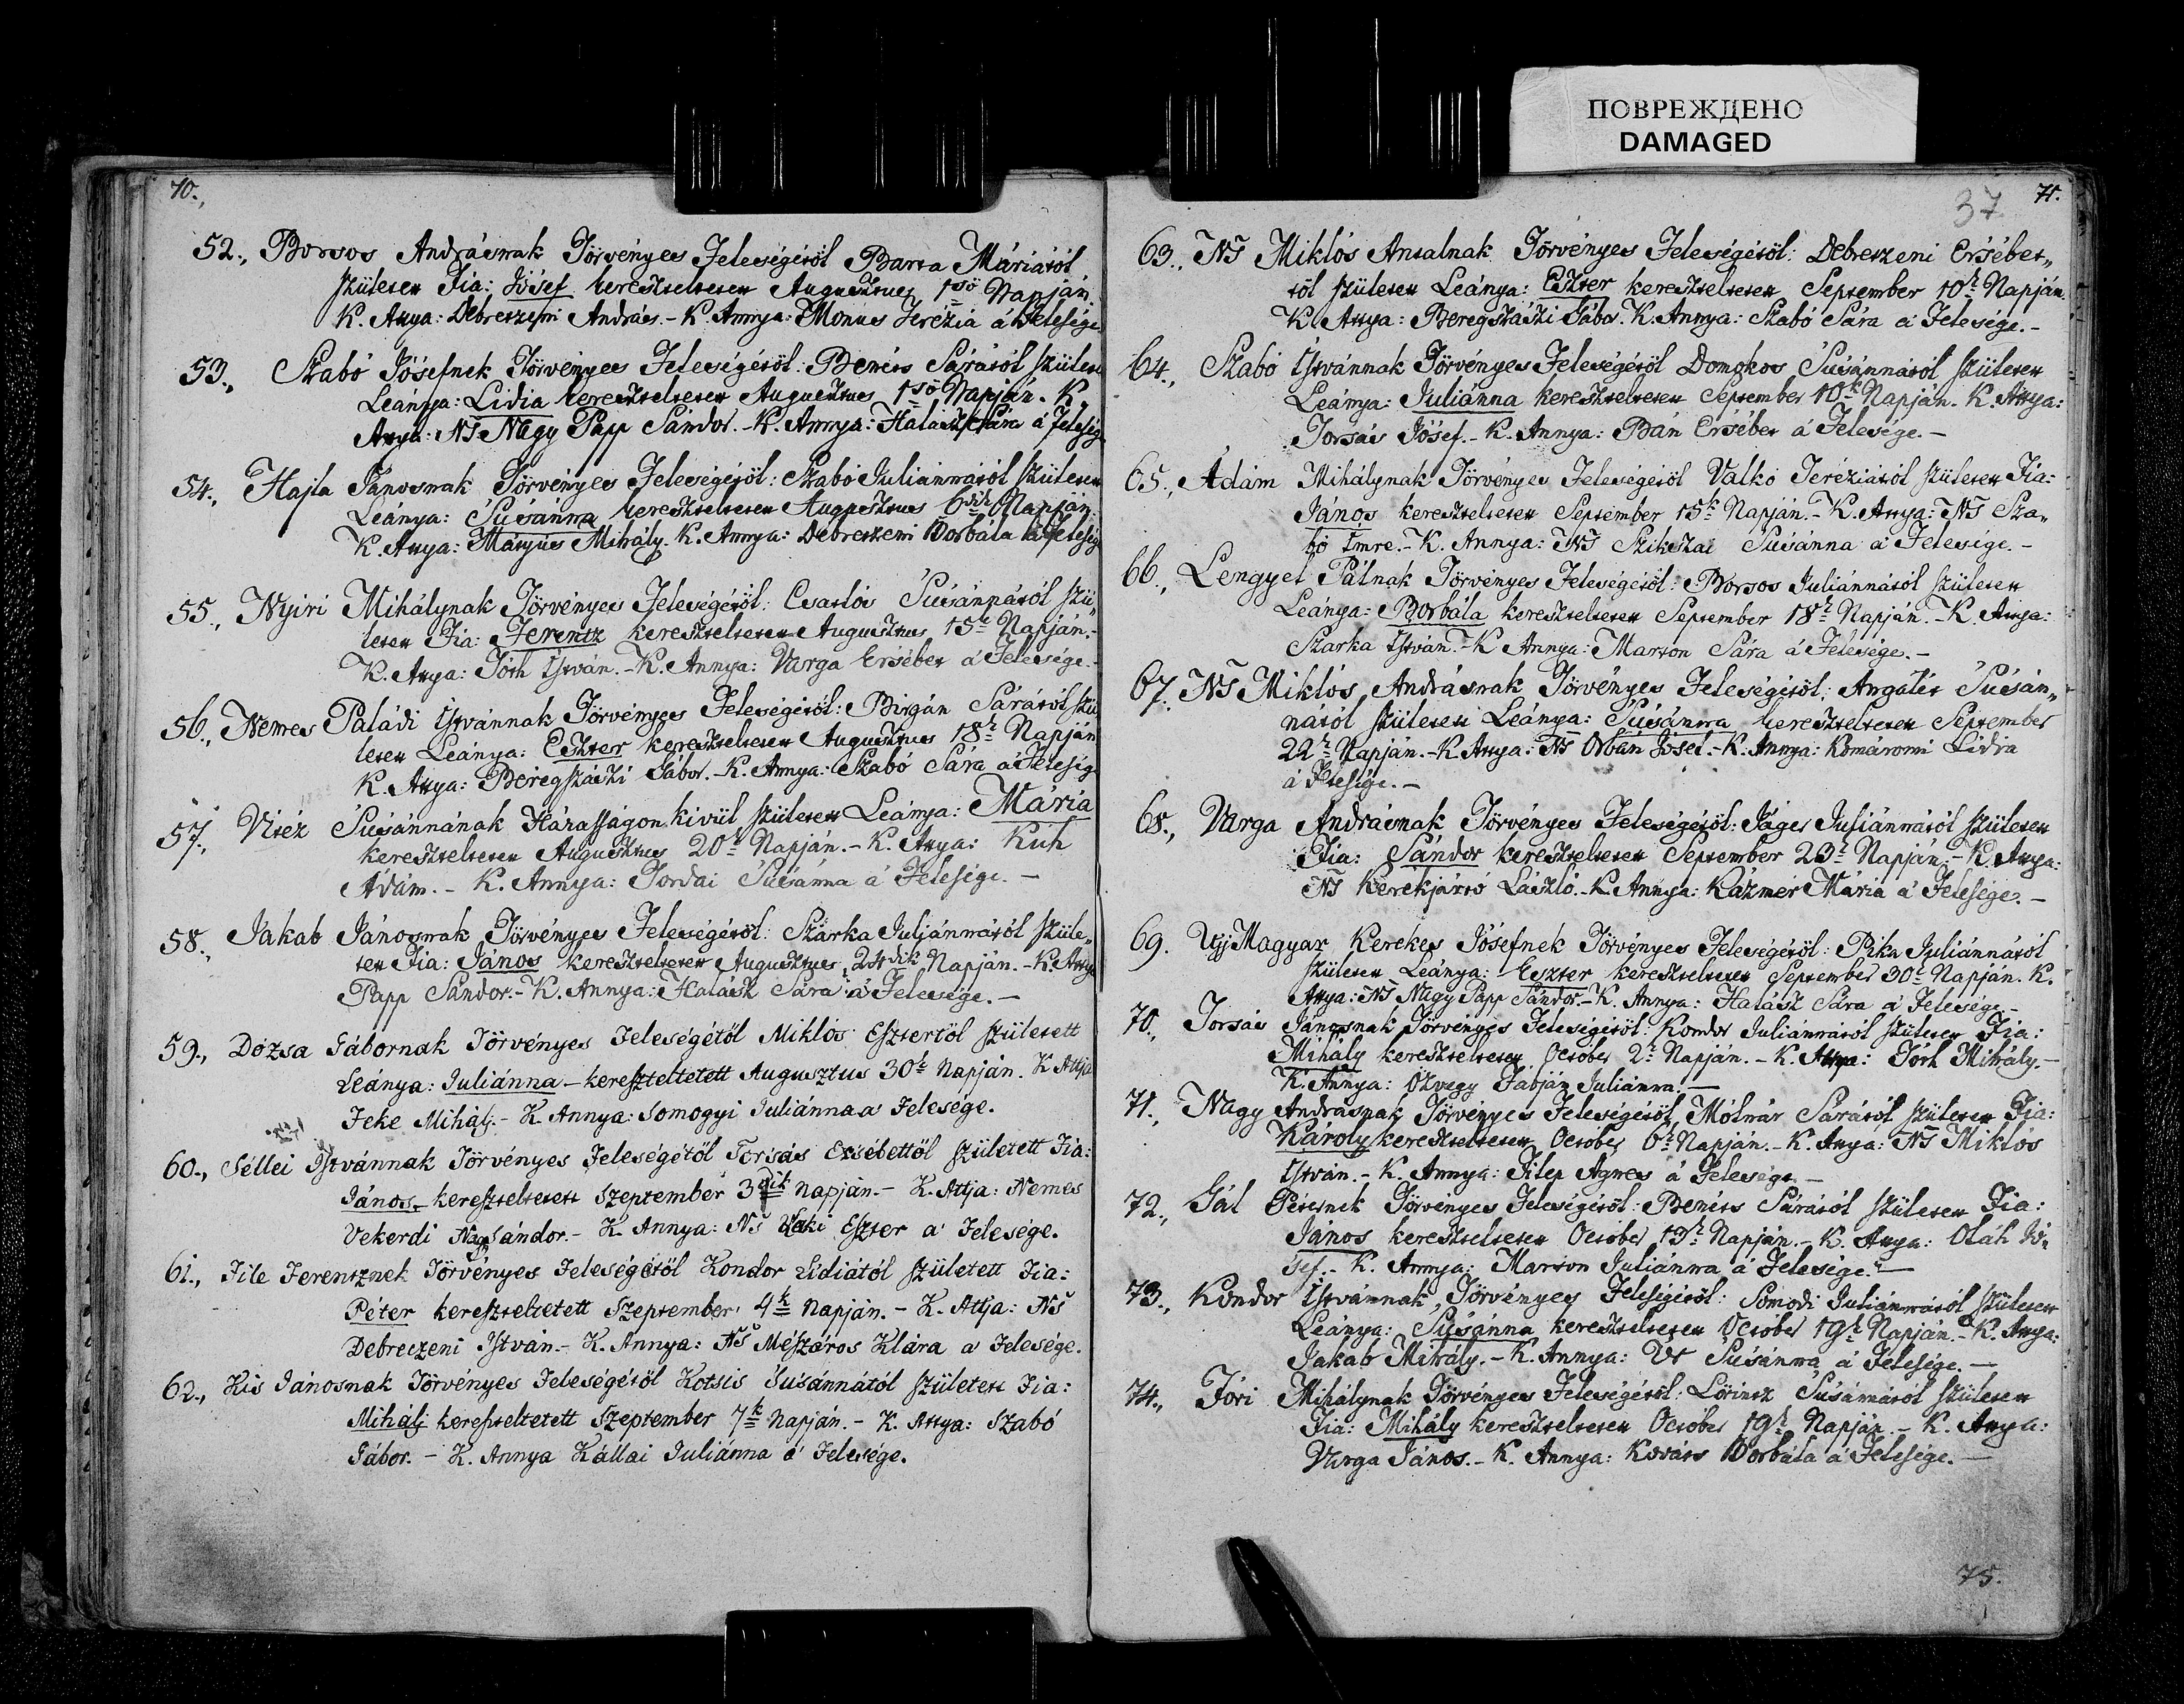 ПОВРЕЖДЕНО
DAMAGED
70.
52., Borsos Andrásnak Törvényes Feleségétöl Barta Máriátol
születtett Fia: Jósef kereszteltetett Augusztus 1ső Napján.
K. Attya: Debreczeni András. - K. Annya: Monus Terézia á Felesége
53., Szabó Jósefnek Törvényes Feleségétöl: Bentsis Sárától született
Leánya: Lidia kereszteltetett Augusztus 1ső Napján. K.
Attya: NS Nagy Papp Sándor. - K. Annya: Halász Sára á Feleség
54., Hajla Jánosnak Törvényes Feleségétöl: Szabó Juliánnától született
Leánya: Susánna kereszteltetett Augusztus 6dik Napján.
K. Attya: Mihály. K. Annya: Debreczeni Borbála á Feleség
55., Nyiri Mihálynak Törvényes Feleségétöl: Csatlós Susánnától szü„
letett Fia: Ferentz kereszteltetett Augusztus 15k Napján.-
K. Attya: Tóth István. - K. Annya: Varga Ersébet á Felesége.-
56., Nemes Paládi Istvánnak Törvényes Feleségétöl: Birgán Sárától szü
letett Leánya: Eszter kereszteltetett Augusztus 18k Napján
K. Attya: Beregszászi Gábor. - K. Annya: Szabó Sára á Feleség
57., Vitéz Susánnának Házasságon kivül született Leánya: Mária
kereszteltetett Augusztus 20k Napján. - K. Attya: Kúti
Ádám. - K. Annya: Tordai Susánna á Felesége. -
58., Jakab Jánosnak Törvényes Feleségétöl: Szarka Juliánnától szüle„
tett Fia: János kereszteltetett Augusztus 24dik Napján. - K. Attya
Papp Sándor. - K. Annya: Halász Sára á Felesége. -
59., Dózsa Gábornak Törvényes Feleségétöl Miklós Esztertöl született
Leánya: Juliánna - kereszteltetett Augusztus 30k Napján. K Attja
Feke Mihálj. - K. Annya: Somogyi Juliánna a Felesége.
60., Séllei Istvánnak Törvényes Feleségétöl Torsás Ersébettöl született Fia:
János - kereszteltetett Szeptember 3dik Napján. - K. Attja: Nemes
Vekerdi Nagy Sándor. - K. Annya: NS Laki Eszter a Felesége.
61., File Ferentznek Törvényes Feleségétöl Kondor Lidiától született Fia:
Péter kereszteltetett Szeptember 4k Napján. - K. Attja: NS
Debreczeni István. - K. Annya: NS Mészáros Klára a Felesége.
62., Kis Jánosnak Törvényes Feleségétöl Kotsis Susánnától született Fia:
Mihálj kereszteltetett Szeptember 7k Napján. - K. Attya: Szabó
Gábor. - K. Annya Kállai Juliánna á Felesége.
37 71.
63., NS Miklós Antalnak Törvényes Feleségétöl: Debretzeni Ersébet„
töl született Leánya: Eszter kereszteltetett September 10k Napján.
K. Attya: Beregszászi Gábor. K. Annya: Szabó Sára á Felesége. -
64., Szabó Istvánnak Törvényes Feleségétöl Domokos Susánnától született
Leánya: Juliánna kereszteltetett September 10k Napján. K. Attya:
Torsás Jósef. - K. Annya: Bán Ersébet á Felesége. -
65., Ádám Mihálynak Törvényes Feleségétöl Valkó Teréziától született Fia:
János kereszteltetett September 15k Napján. - K. Attya: NS Sza„
bó Imre. - K. Annya: NS Szikszai Susánna á Felesége. -
66., Lengyel Pálnak Törvényes Feleségétöl: Borsos Juliánnától született
Leánya: Borbála kereszteltetett September 18k Napján. - K. Attya:
Szarka István. - K Annya: Marton Sára á Felesége. -
67., NS Miklós Andrásnak Törvényes Feleségétöl: Angális Susán„
nától született Leánya: Susánna kereszteltetett September
22k Napján. - K Attya: NS Orbán Jósef. - K. Annya: Komáromi Lidia
á Felesége. -
68., Varga Andrásnak Törvényes Feleségétöl: Jáger Juliánnától született
Fia: Sándor kereszteltetett September 23k Napján. - K. Attya:
NS Kerekjártó László. - K. Annya: Kázmér Mária á Felesége. -
69. Ujj Magyar Kerekes Jósefnek Törvényes Feleségétöl: Pika Juliánnától
született Leánya: Eszter kereszteltetett September 30k Napján. K.
Attya: NS Nagy Papp Sándor. - K. Annya: Halász Sára á Felesége -
70., Torsás Jánosnak Törvényes Feleségétöl: Kondor Juliánnától született Fia:
Mihály kereszteltetett Octóber 2k Napján. - K. Attya: Tóth Mihály. -
K. Annya: Özvegy Fábján Juliánna. -
71., Nagy Andrásnak Törvényes Feleségétöl, Mólnár Sárától született Fia:
Károly kereszteltetett Octóber 6k Napján. - K. Attya: NS Miklós
István. - K. Annya: Filep Ágnes á Felesége. -
72., Gál Péternek Törvényes Feleségétöl: Bentsis Sárától született Fia:
János kereszteltetett Octóber 13k Napján. - K. Attya: Oláh Jó„
sef. - K. Annya: Marton Juliánna á Felesége. -
73., Kondor Istvánnak, Törvényes Feleségétöl: Somodi Juliánnától született
Leánya: Susánna kereszteltetett Octóber 19k Napján. - K. Attya:
Jakab Mihály. - K. Annya: Susánna á Felesége. -
74., Fóri Mihálynak Törvényes Feleségétöl: Lörintz Susánnától született
Fia: Mihály kereszteltetett Octóber 19k Napján. - K. Attya:
Varga János. - K. Annya: Kováts Borbála á Felesége. -
75.